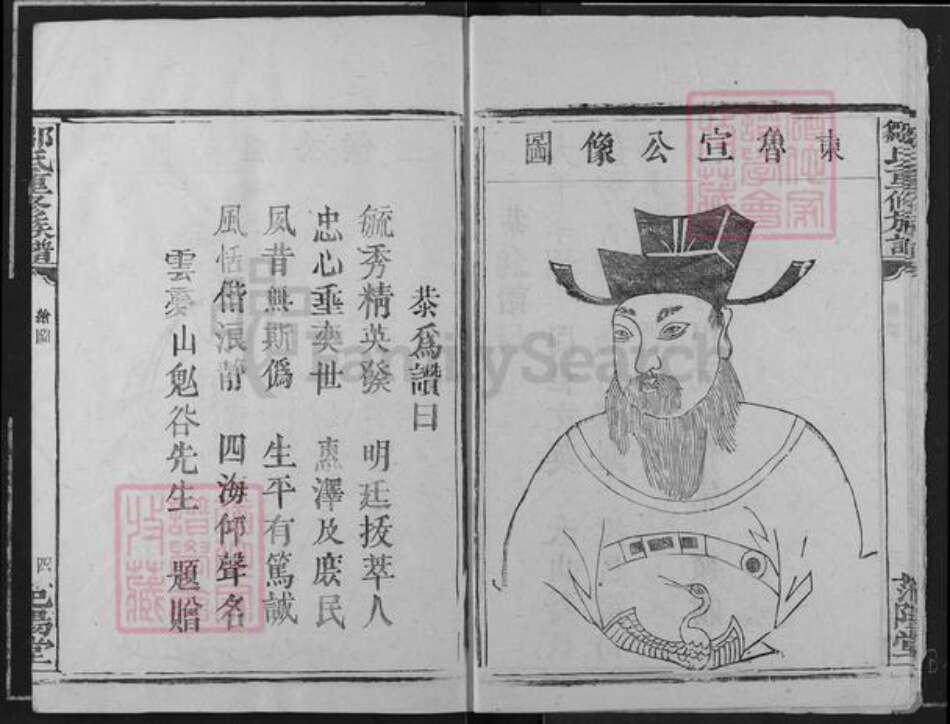 東魯宣公像圖
恭爲讚曰
毓秀精英發 明廷拔萃人
忠心垂奕世 惠澤及庶民
夙昔無斯僞 生平有篤誠
風恬偕浪静 四海仰聲名
雲夢山鬼谷先生 題贈
鄒氏重修族譜
繪圖
四
FamilySearch